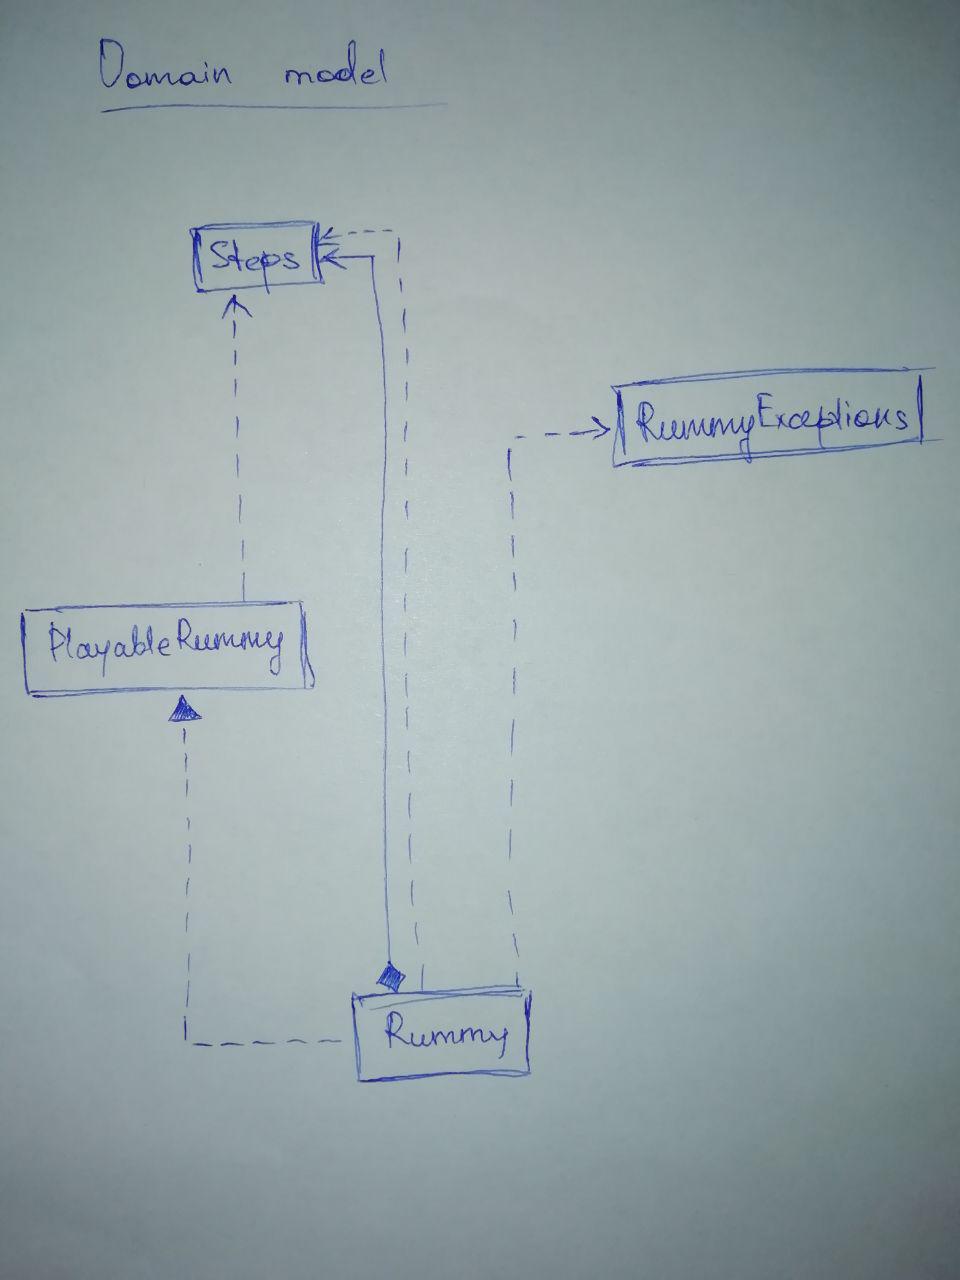 Domain model
Steps
RummyExceptions
PlayableRummy
Rummy